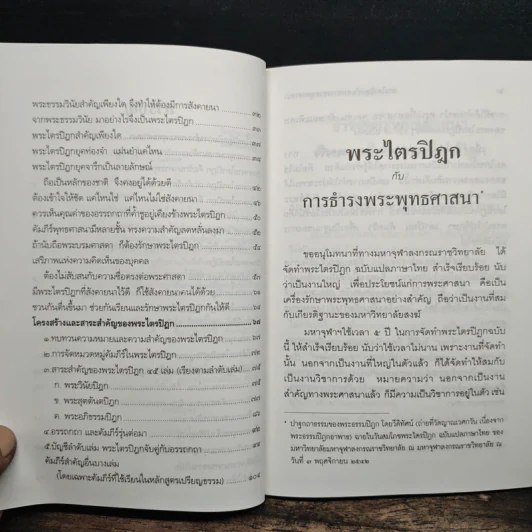 พระธรรมวินัยสำคัญเพียงใด จึงทำให้ต้องมีการสังคายนา
จากพระธรรมวินัย มาอย่างไรจึงเป็นพระไตรปิฎก
พระไตรปิฎกสำคัญเพียงใด
พระไตรปิฎกยุคท่องจำ แม่นยำแค่ไหน
พระไตรปิฎกยุคจารึกเป็นลายลักษณ์
ถือเป็นหลักของชาติ จึงคงอยู่ได้ด้วยดี
ต้องเข้าใจให้ชัด แค่ไหนใช่ แค่ไหนไม่ใช่สังคายนา
ควรเห็นคุณค่าของอรรถกถาที่ค้ำชูอยู่เคียงข้างพระไตรปิฎก
คัมภีร์พุทธศาสนามีหลายชั้น ทรงความสำคัญลดหลั่นลงมา
ถ้านับถือพระบรมศาสดา ก็ต้องรักษาพระไตรปิฎกไว้
เสรีภาพแห่งความคิดเห็นของบุคคล
ต้องไม่สับสนกับความซื่อตรงต่อพระศาสดา
มีพระไตรปิฎกที่สังคายนาไว้ดี ก็ใช้สังคายนาคนได้ด้วย
ชวนกันตื่นขึ้นมา ช่วยกันเรียนและรักษาพระไตรปิฎกกันให้ดี
โครงสร้างและสาระสำคัญของพระไตรปิฎก
๑.ทบทวนความหมายและความสำคัญของพระไตรปิฎก
๒.การจัดหมวดหมู่คัมภีร์ในพระไตรปิฎก
๓.สาระสำคัญของพระไตรปิฎก ๔๕ เล่ม (เรียงตามลำดับเล่ม)
ก. พระวินัยปิฎก
ข. พระสุตตันตปิฎก
ค. พระอภิธรรมปิฎก
๔.อรรถกถา และคัมภีร์รุ่นต่อมา
๕.บัญชีลำดับเล่ม พระไตรปิฎกจับคู่กับอรรถกถา
คัมภีร์สำคัญอื่นบางเล่ม
(โดยเฉพาะคัมภีร์ที่ใช้เรียนในหลักสูตรเปรียญธรรม) ๑๐๔
พระไตรปิฎก
กับ
การธำรงพระพุทธศาสนา*
ขออนุโมทนาที่ทางมหาจุฬาลงกรณราชวิทยาลัย ได้
จัดทำพระไตรปิฎก ฉบับแปลภาษาไทย สำเร็จเรียบร้อย นับ
ว่าเป็นงานใหญ่ เพื่อประโยชน์แก่การพระศาสนา คือเป็น
เครื่องรักษาพระศาสนาอย่างสำคัญ ถือว่าเป็นงานที่สม
กับเกียรติฐานะของมหาวิทยาลัยสงฆ์
มหาจุฬาฯใช้เวลา ๕ ปี ในการจัดทำพระไตรปิฎกฉบับ
นี้ ให้สำเร็จเรียบร้อย นับว่าใช้เวลาไม่นาน เพราะงานที่จัดทำ
นั้น นอกจากเป็นงานที่ใหญ่ในตัวแล้ว ก็ได้จัดทำให้สมกับ
เป็นงานวิชาการด้วย หมายความว่า นอกจากเป็นงาน
สำคัญทางพระศาสนาแล้ว ก็มีความเป็นวิชาการอยู่ในตัว เช่น
* ปาฐกถาธรรมของพระธรรมปิฎก โดยวีดิทัศน์ (ถ่ายที่วัดญาณเวศกวัน เนื่องจาก
พระธรรมปิฎกอาพาธ) ฉายในวันสมโภชพระไตรปิฎก ฉบับแปลภาษาไทย ของ
มหาวิทยาลัยมหาจุฬาลงกรณราชวิทยาลัย ณ มหาจุฬาลงกรณราชวิทยาลัย ณ.
วันที่ ๓ พฤศจิกายน ๒๕๔๒